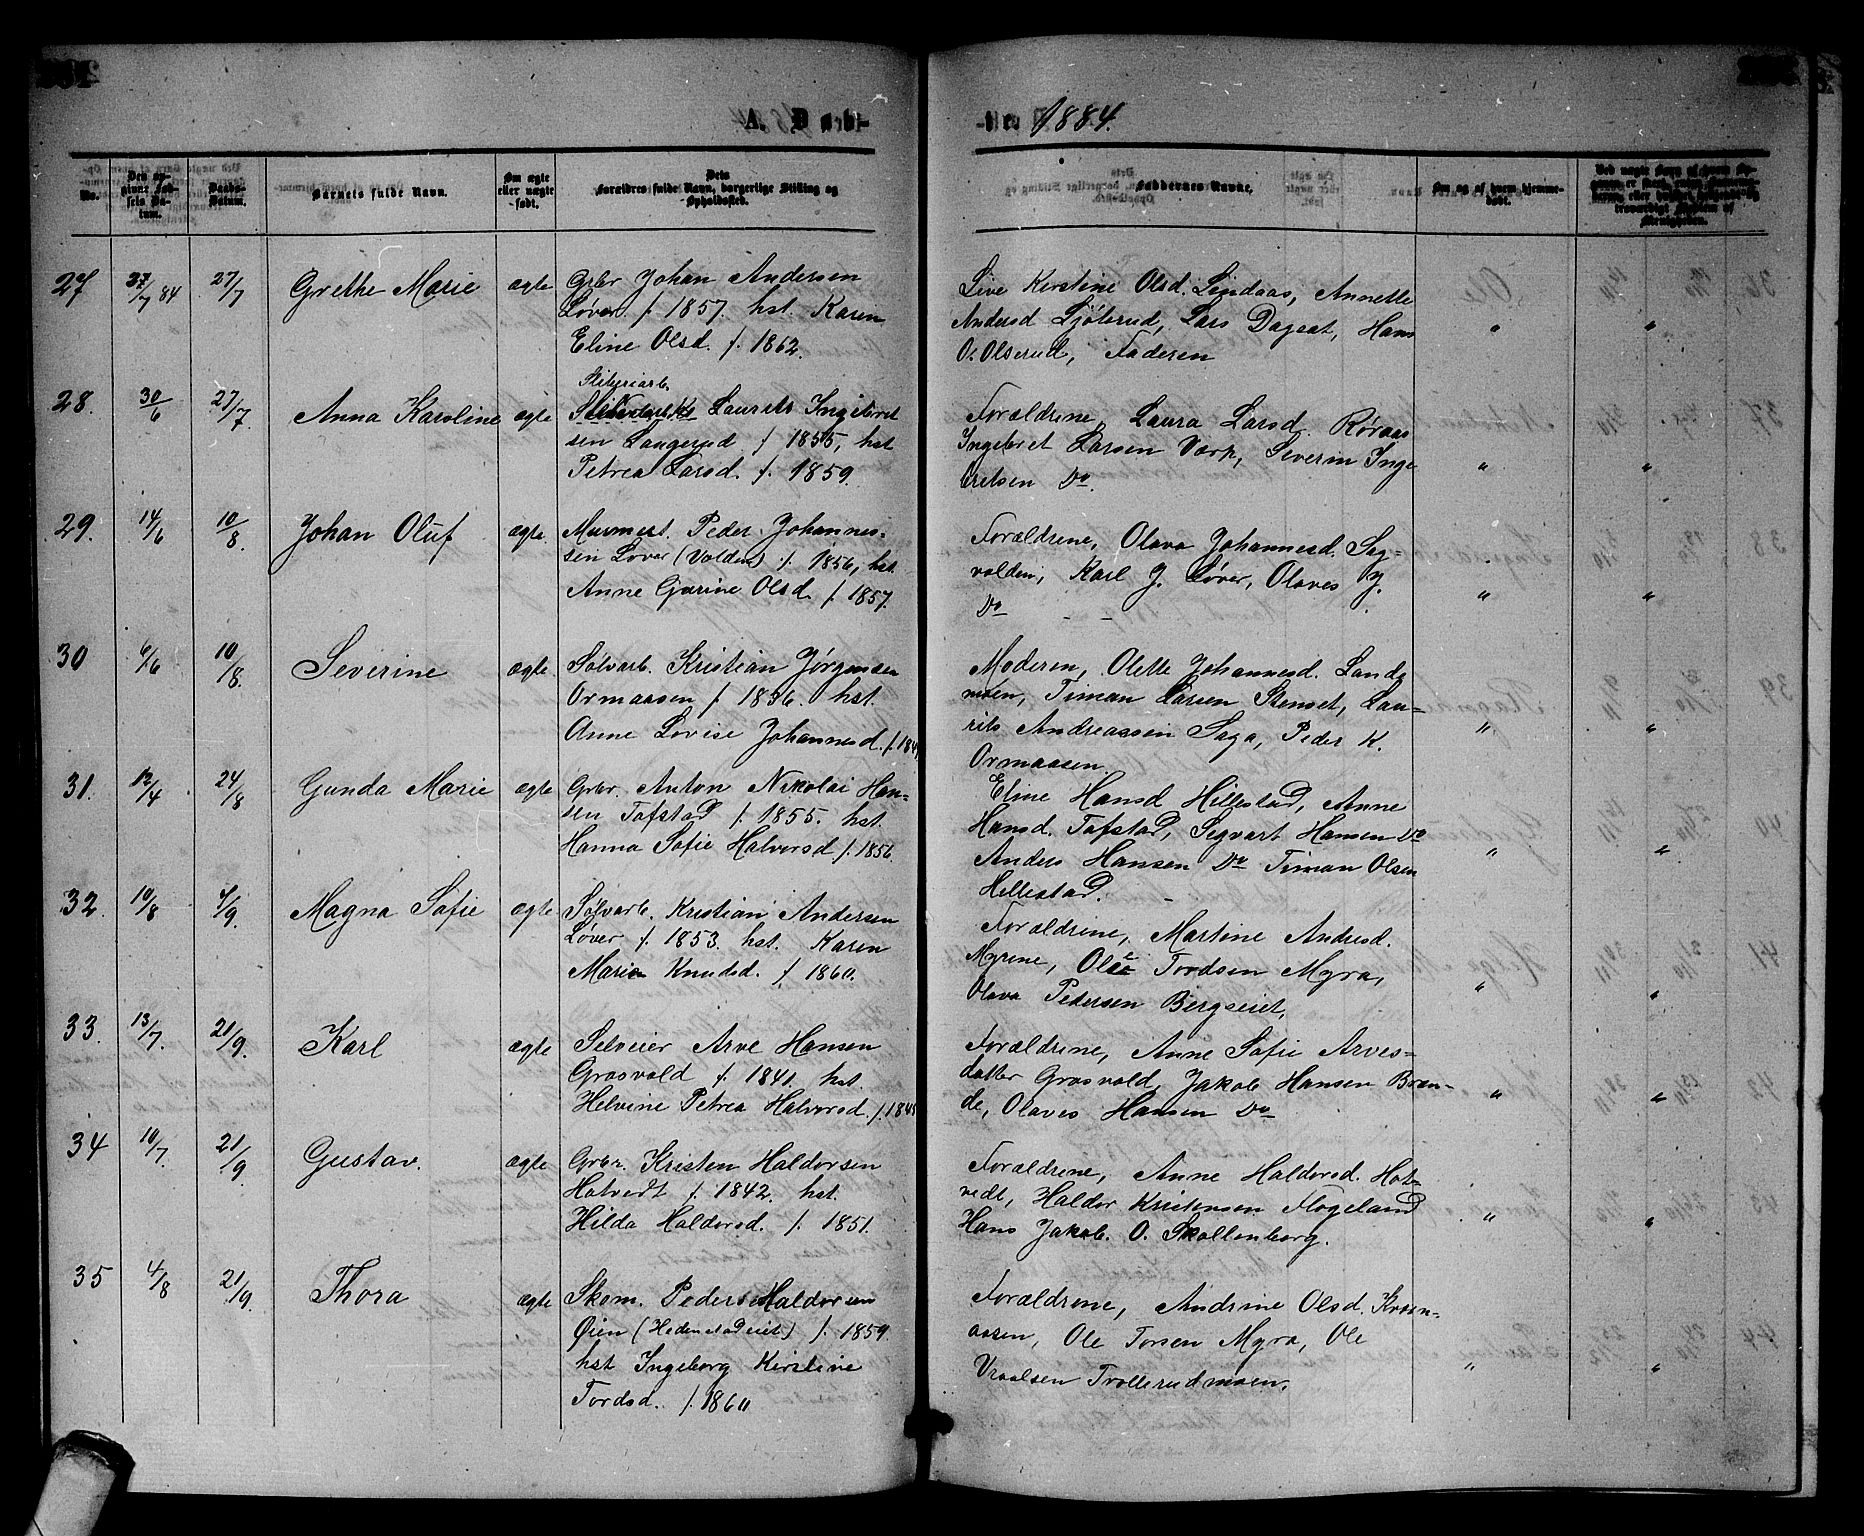 A. Døb-
te. 1884.
No.
Den op-
givne Fød-
sels Da-
tum.
Daabs-
Datum.
Barnets fulde Navn.
Om ægte
eller uægte
født.
Dets
Forældres fulde Navn, borgerlige Stilling og
Opholdssted.
Faddernes Navne.
Om og af hvem hjemme-
døbt.
27 27/7 84 27/7 Grethe Marie ægte Grbr Johan Andersen
Løver f. 1857. hst. Karen
Eline Olsd. f. 1862.
Live Kirstine Olsd. Lindaas, Annette
Andersd Ljøterud, Lars Dagsat, Hans
O. Olserud, Faderen
" "
28. 30/6 27/7. Anna Karoline ægte Sliberiarb.
Laurits Ingebret
sen Laugerud f 1855, hst
Petrea Larsd. f. 1859.
Forældrene, Laura Larsd. Røraas
Ingebret Larsen Værp, Severin Inge
bretsen Do.
" "
29. 14/6 10/8. Johan Oluf ægte. Murmest. Peder Johannes-
sen Løver (Volden) f. 1856, hst.
Anne Gurine Olsd f. 1857.
Forældrene, Olava Johannesd. Sag-
volden, Karl J. Løver, Olaves J.
Do - -
" "
30 6/6 10/8. Severine ægte Sølvarb. Kristian Jørgensen
Ormaasen f 1836. hst.
Anne Lovise Johannesd. f. 184
Moderen, Olette Johannesd. Lande
moen, Timan Larsen Stenset, Lau-
rits Andreassen Saga, Peder K.
Ormaasen
" "
31. 12/4 24/8 Gunda Marie ægte Grbr. Anton Nikolai Han-
sen Tofstad f. 1855. hst.
Hanna Sofie Halvorsd f. 1856.
Eline Hansd Hillestad, Anne
Hansd. Tofstad, Segvart Hansen Do
Anders Hansen Do Timan Olsen
Hillestad. -
" "
32. 10/8 7/9. Magna Sofie ægte Sølvarb. Kristian Andersen
Løver f. 1853. hst. Karen
Marie Knudsd. f. 1860.
Forældrene, Martine Andresd.
Myrene, Ole Tordsen Myra,
Olava Pedersen Bergseiet,
" "
33. 13/7. 21/9. Karl ægte Selveier Arve Hansen
Grosvold f. 1841. hst.
Helvine Petrea Halvorsd. f. 184
Forældrene, Anne Sofie Arves-
datter Grosvold, Jakob Hansen Bran-
de, Olaves Hansen Do
" "
34 10/7. 21/9 Gustav. ægte Grbr. Kristen Haldorsen
Hotvedt f. 1842. hst.
Hilda Haldorsd. f. 1851.
Forældrene, Anne Haldorsd. Hot-
vedt, Haldor Kristensen Flogeland
Hans Jakob. O. Skollenborg.
" "
35 4/8 21/9. Thora ægte Skom. Peder Haldorsen
Øien (Hedenstadeiet) f. 1859.
hst Ingeborg Kirstine
Tordsd. f. 1860
Forældrene, Andrine Olsd. Kroan-
aasen, Ole Torsen Myra, Ole
Vraalsen Trollerudmoen.
" "